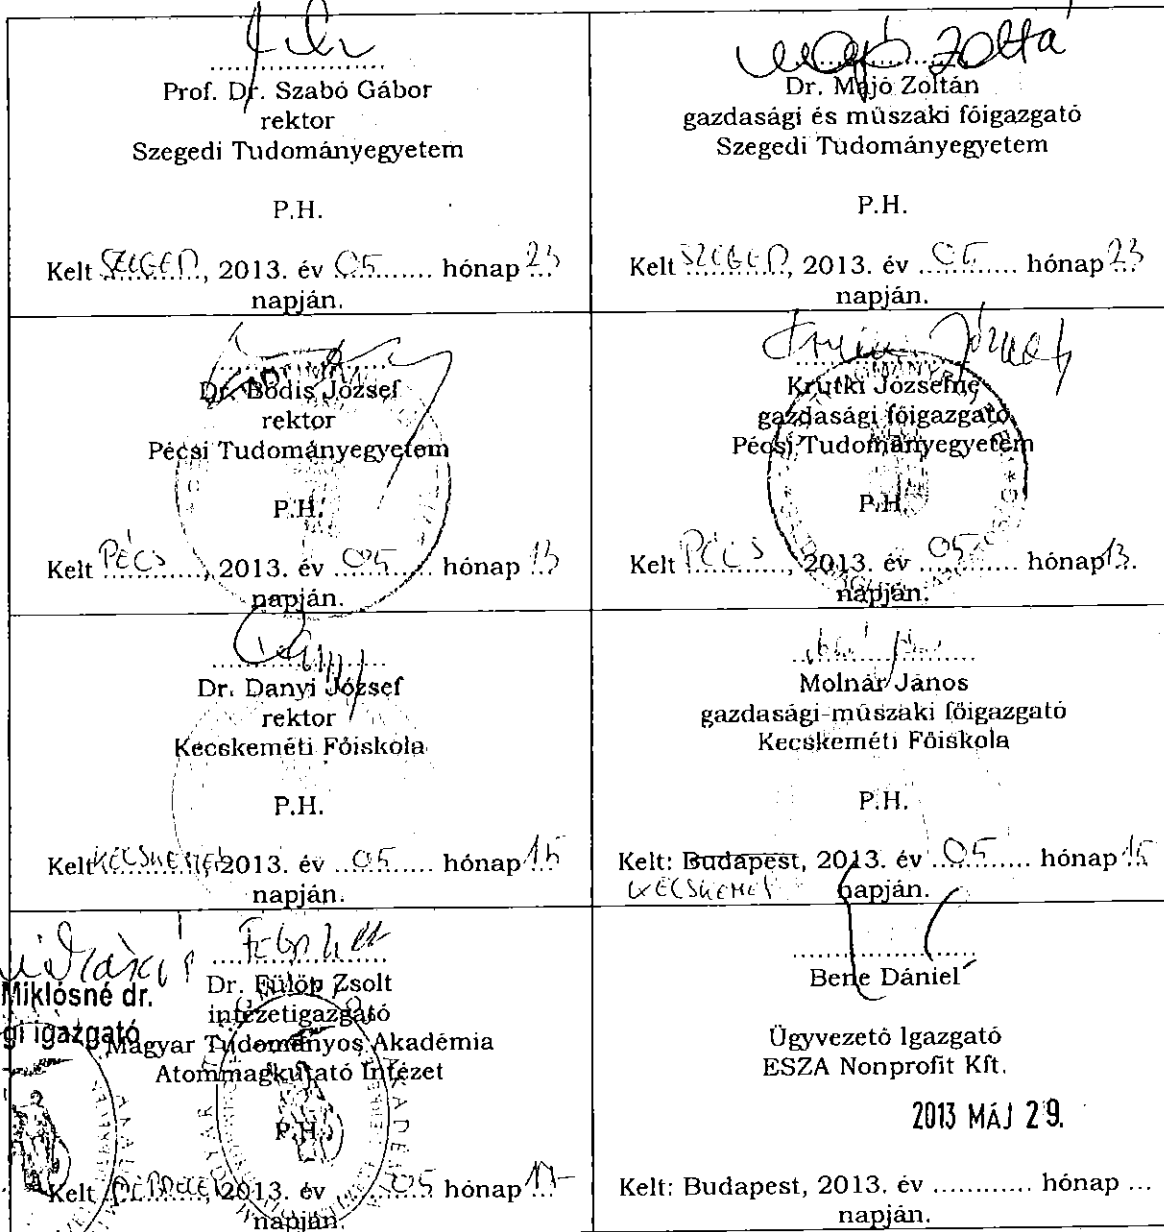 Prof. Dr. Szabó Gábor
rektor
Szegedi Tudományegyetem
P.H.
Kelt SZEGED, 2013. év 05 hónap 23
napján.
Majó Zoltá
Dr. Majó Zoltán
gazdasági és műszaki főigazgató
Szegedi Tudományegyetem
P.H.
Kelt SZEGED, 2013. év 05 hónap 23
napján.
Dr. Bódis József
rektor
Pécsi Tudományegyetem
P.H.
Kelt PÉCS, 2013. év 05 hónap 13
napján.
Krutki Józsefné
gazdasági főigazgató
Pécsi Tudományegyetem
P.H.
Kelt PÉCS, 2013. év 05 hónap 13.
napján.
Dr. Danyi József
rektor
Kecskeméti Főiskola
P.H.
Kelt KECSKEMÉT 2013. év 05 hónap 15
napján.
Molnár János
gazdasági-műszaki főigazgató
Kecskeméti Főiskola
P.H.
Kelt: Budapest, 2013. év 05 hónap 15
KECSKEMÉT napján.
Miklósné dr.
gi igazgató
Dr. Fülöp Zsolt
intézetigazgató
Magyar Tudományos Akadémia
Atommagkutató Intézet
P.H.
Kelt 2013. év 05 hónap
napján.
Bene Dániel
Ügyvezető Igazgató
ESZA Nonprofit Kft.
2013 MÁJ 29.
Kelt: Budapest, 2013. év ............ hónap ...
napján.